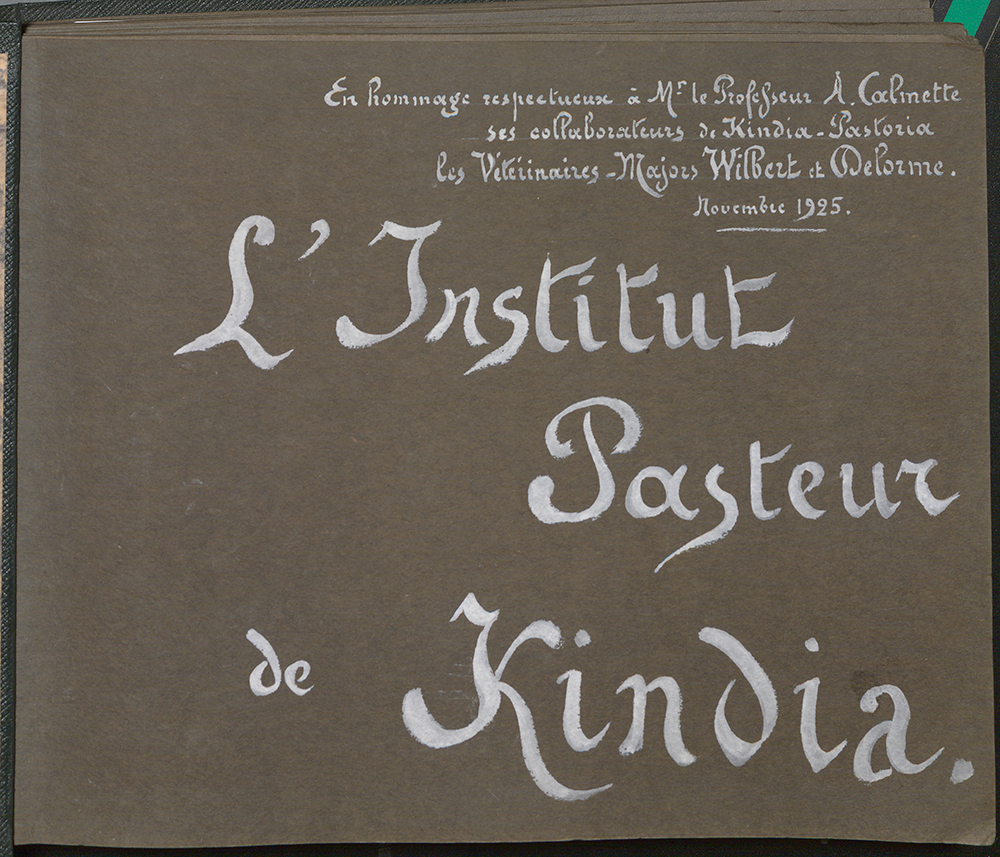 En hommage respectueux à Mr le Professeur A. Calmette
ses collaborateurs de Kindia-Pastoria
les Vétérinaires-Majors Wilbert et Delorme.
Novembre 1925.
L'Institut
Pasteur
de Kindia.